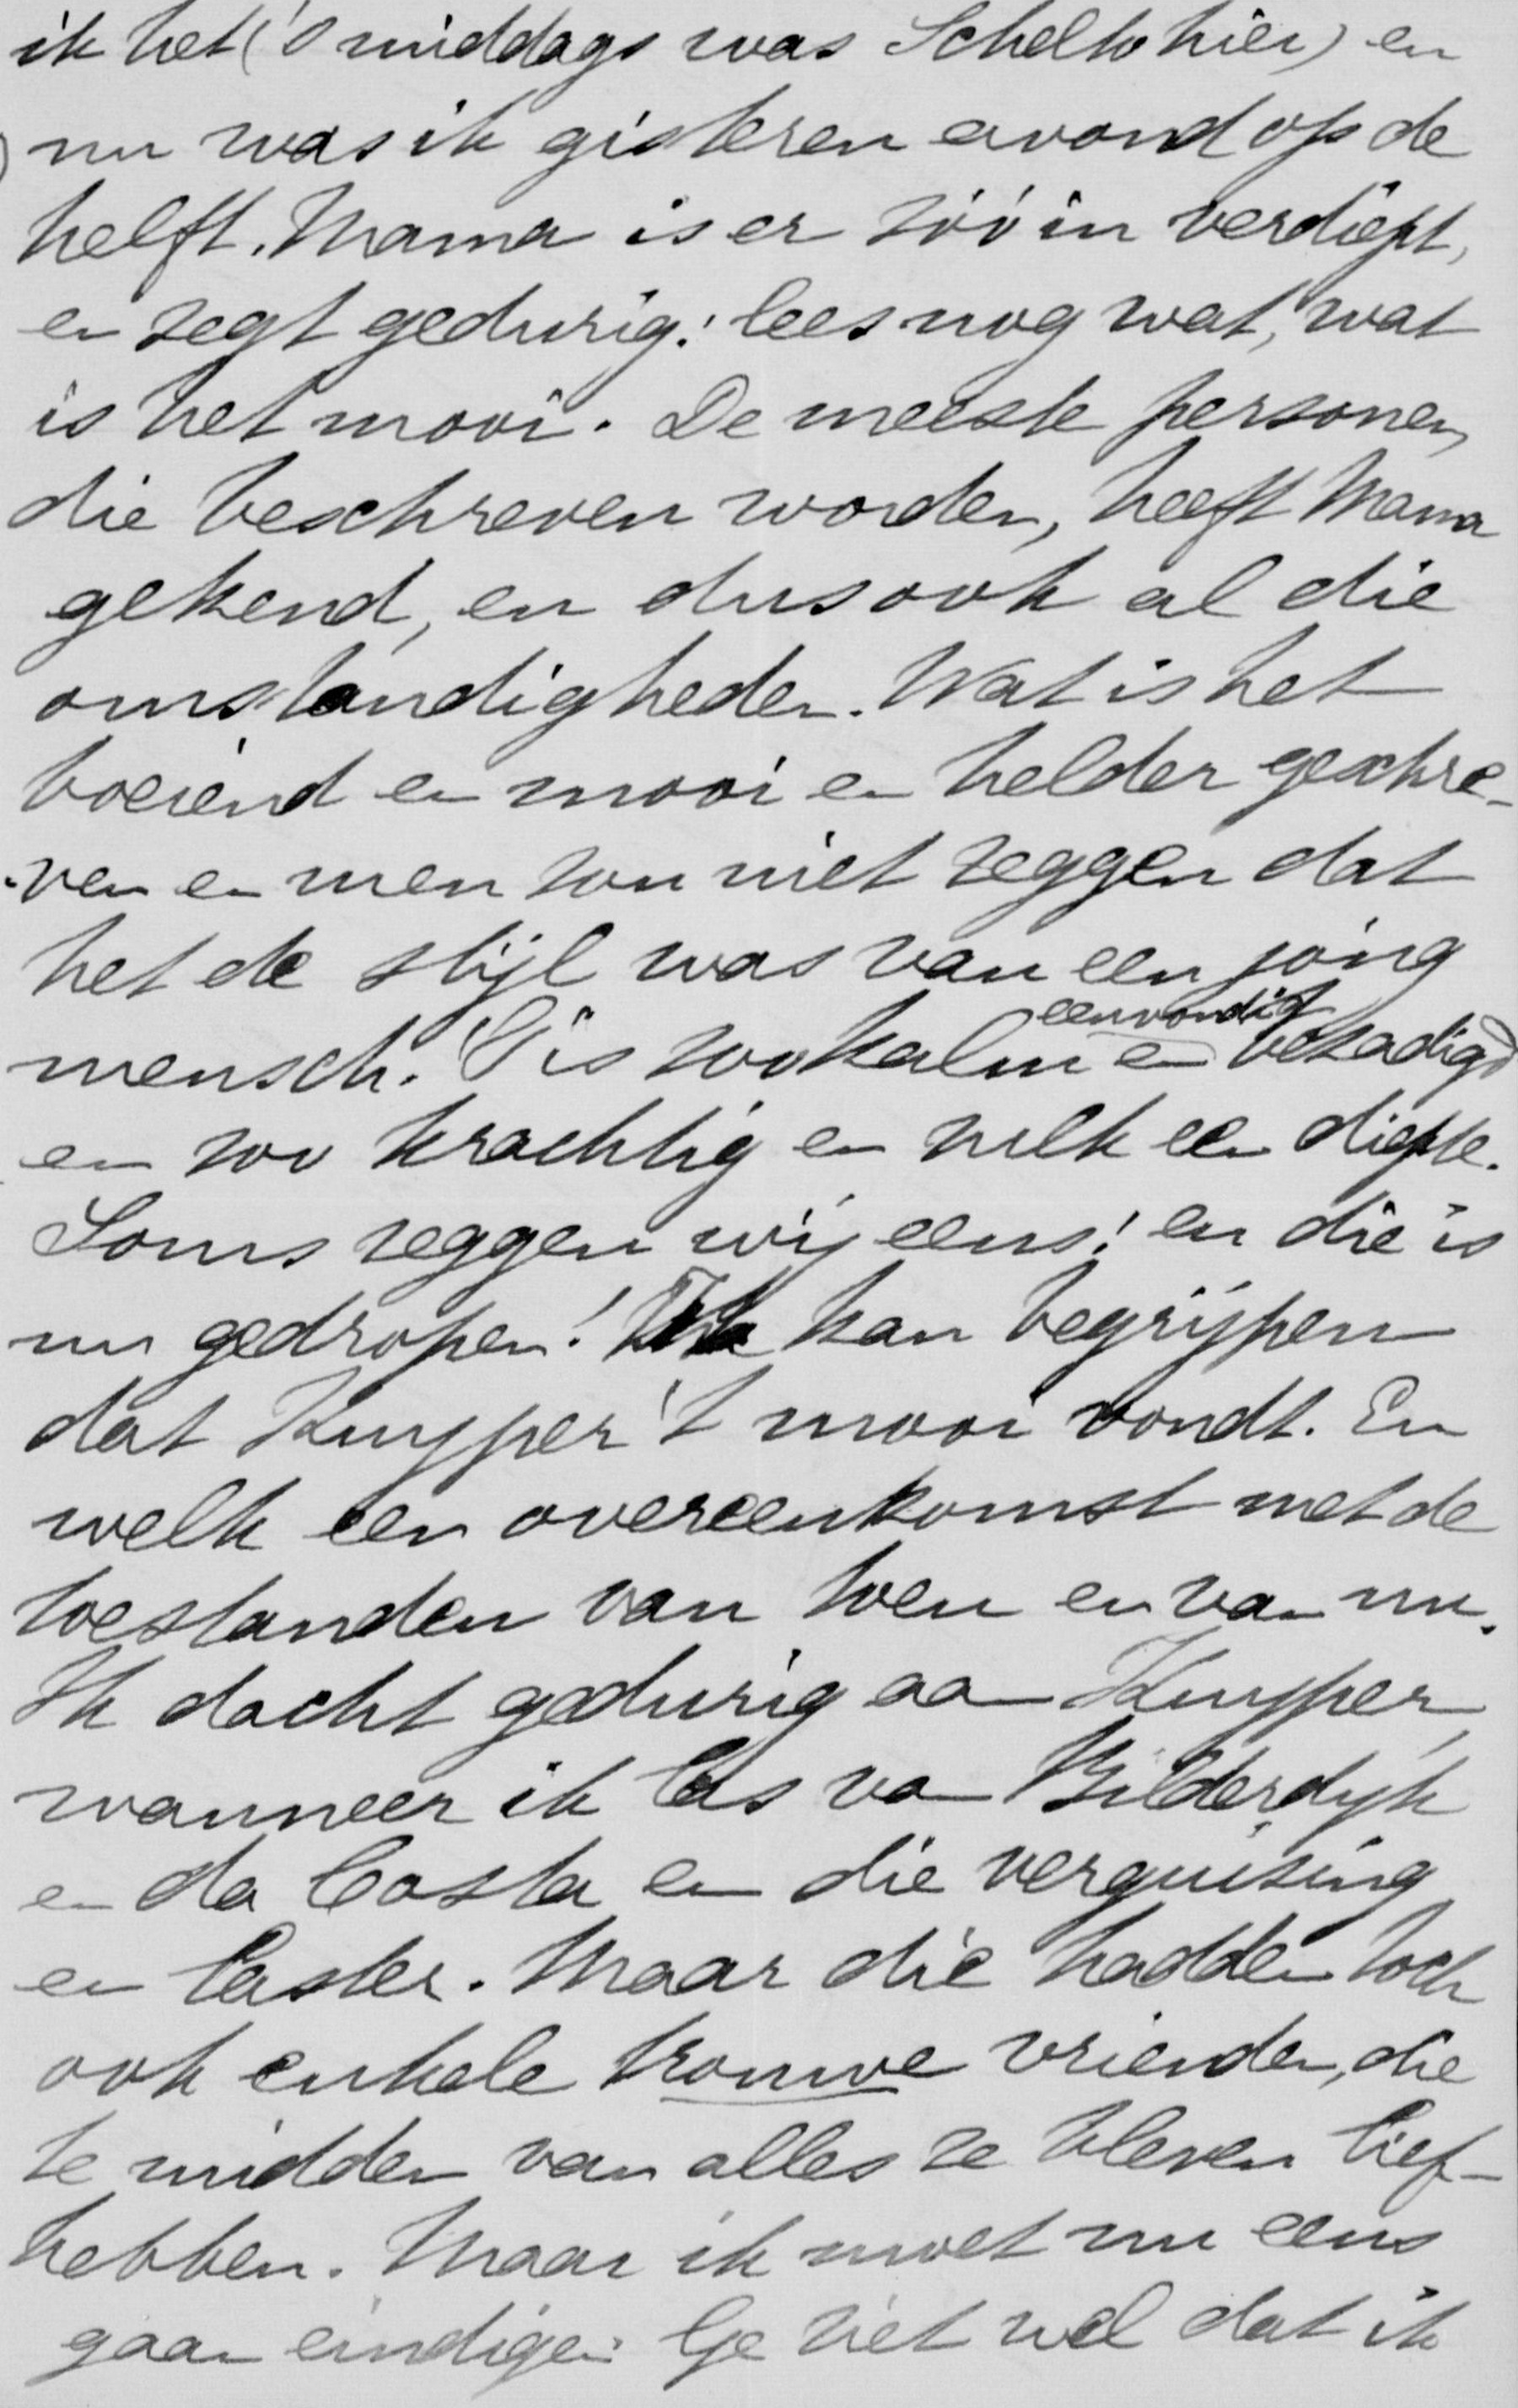 ik het ('s middags was Schelto hier) en
nu was ik gisteren avond op de
helft. Mama is er zóó in verdiept,
en zegt gedurig: lees nog wat, wat
is het mooi. De meeste personen,
die beschreven worden, heeft Mama
gekend, en dus ook al die
omstandigheden. Wat is het
boeiend en mooi en helder geschre-
-ven en men zou niet zeggen dat
het de stijl was van een jong
mensch. 't Is zoo kalm eenvoudig en bezadigd
en zoo krachtig en welk een diepte.
Soms zeggen wij eens: en die is
nu gedropen! Ik kan begrijpen
dat Kuyper 't mooi vondt. En
welk een overeenkomst met de
toestanden van toen en van nu.
Ik dacht gedurig aan Kuyper,
wanneer ik las van Bilderdyk
en da Costa en die verguising
en laster. Maar die hadden toch
ook enkele trouwe vrienden, die
te midden van alles ze bleven lief-
hebben. Maar ik moet nu eens
gaan eindigen. Ge ziet wel dat ik